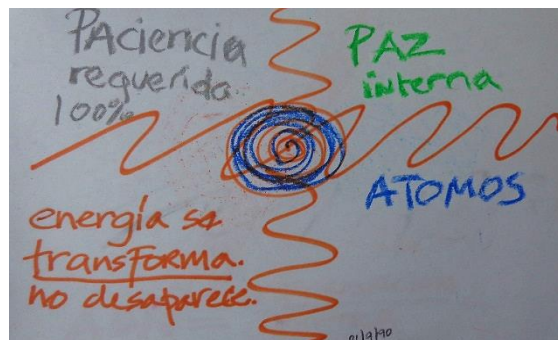 PAciencia
requerida
100%
PAZ
interna
ATOMOS
energía se
transForma.
no desaparece.